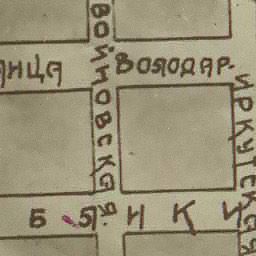 ВОЙНОВСКАЯ
АНЦА
ВОЛОДАР-
ИРКУТСКАЯ
Б Я Н К И